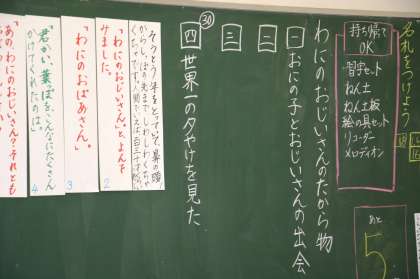 名札をつけよう
持ち帰って
OK
習字セット
ねん土
ねん土板
絵の具セット
リコーダー
メロディオン
あと
5
わにのおじいさんのたから物
一 おにの子とおじいさんの出会
二
三
30
四 世界一の夕やけを見た
そうとう年をとっていて、鼻の頭
からしっぽの先まで、しわしわくちゃ
くちゃです。人間でいえば百三十才くらい
「わにのおじいさん。」とよんで
みました。
2
「わにのおばあさん。」
3
「君かい、葉っぱをこんなにたくさん
かけてくれたのは。」
4
「あの、わにのおじいさん？それとも